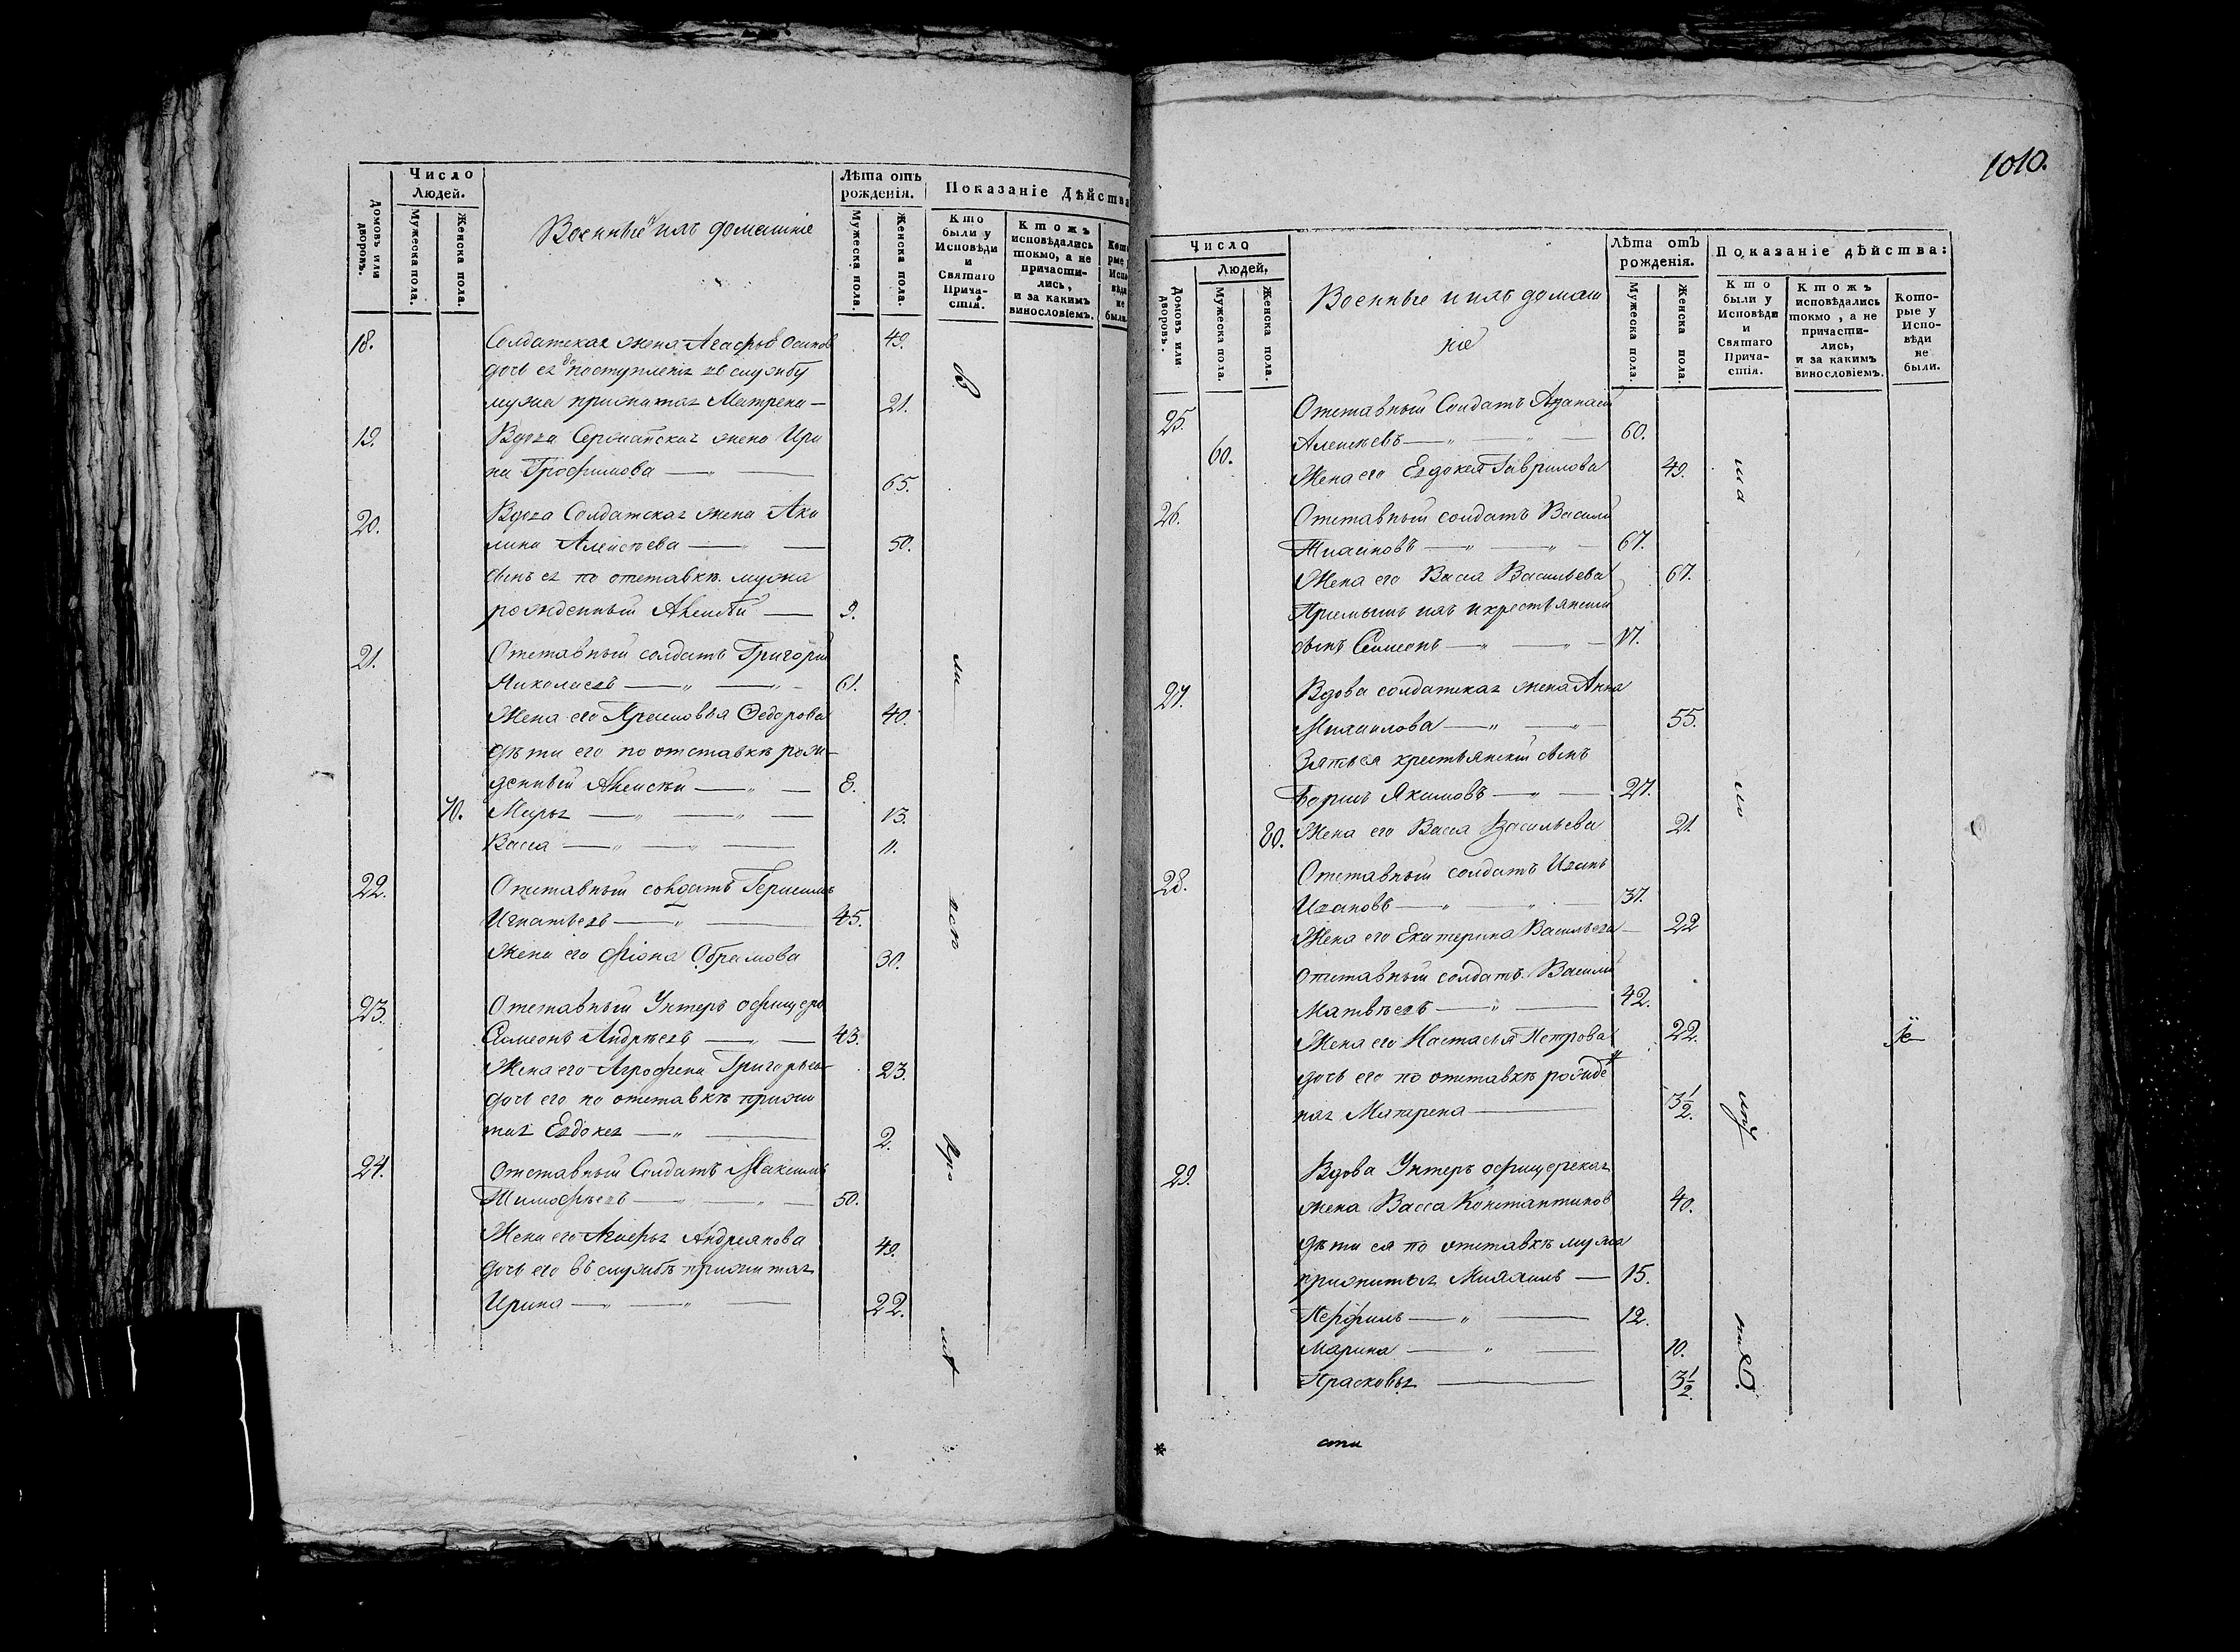 Домовъ или дворовъ.
Число Людей.
Мужеска пола.
Женска пола.
Военные и ихъ домашніе
Лѣта отъ рожденія.
Мужеска пола.
Женска пола.
Показаніе Дѣйства
Кто были у Исповѣди и Святаго Прича-стія.
Ктожъ исповѣдались токмо, а не причасти-лись, и за какимъ винословіемъ.
18. Солдатская жена Агафья Осипов 49.
дочь ея до поступленія въ службу
мужа прижитая Матрена — 21.
19. Вдова Сержантская жена Ири
на Трофимова — „ — 65.
20. Вдова Солдатская жена Аку
лина Алексѣева — „ — 50.
сынъ ея по отставкѣ мужа
рожденный Алексѣй — 9.
21. Отставный солдатъ Григорій
Николаевъ — „ — „ - 61.
Жена его Прасковья Ѳедорова 40.
дѣти его по отставкѣ рож-
денный Алексѣй — „ — 8.
70. Марья — „ — „ — 13.
Васса — „ — „ — 11.
22. Отставный солдатъ Герасимъ
Игнатьевъ — „ — 45.
Жена его Фіона Обрамова 30.
23. Отставный Унтеръ офицеръ
Симеонъ Андреевъ — „ — 43.
Жена его Агрофена Григорьева 23.
дочь его по отставкѣ прижи
тая Евдокея — „ — 2.
24. Отставный Солдатъ Максимъ
Тимофѣевъ — „ — „ — 50.
Жена его Агафья Андреянова 49.
дочь его въ службѣ прижитая
Ирина — „ — „ — 22.
1010.
Домовъ или дворовъ.
Число Людей,
Мужеска пола.
Женска пола.
Военные и ихъ домаш
ніе
Лѣта отъ рожденія.
Мужеска пола.
Женска пола.
Показаніе дѣйства:
Кто были у Исповѣди и Святаго Прича-стія.
Ктожъ исповѣдались токмо, а не причасти-лись, и за какимъ винословіемъ.
Кото-рые у Испо-вѣди не были.
25. Отставный Солдатъ Афанасій
60. Алексѣевъ — „ — „ — 60.
Жена его Евдокея Гаврилова 49.
26. Отставный солдатъ Василій
— „ — „ — 67.
Жена его Васса Васильева 67.
Пріемышъ ихъ крестьянскій
сынъ Симеонъ — „ — „ — 17.
27. Вдова солдатская жена Анна
Михаилова — „ — „ — 55.
Зять ея крестьянскій сынъ
Борисъ Якимовъ — „ — 27.
80. Жена его Васса Васильева 21.
28. Отставный солдатъ Иванъ
Ивановъ — „ — „ — 37.
Жена его Екатерина Васильева — 22
Отставный солдатъ Василій
Матвѣевъ — „ — 42.
Жена его Настасья Петрова 22.
дочь его по отставкѣ рожде
ная Матрена — 3½.
29. Вдова Унтеръ офицерская
жена Васса Константинов 40.
дѣти ея по отставкѣ мужа
прижитыя Михаилъ — 15.
Перфилъ — „ — 12.
Марина — „ — 10.
Прасковья — 3½.